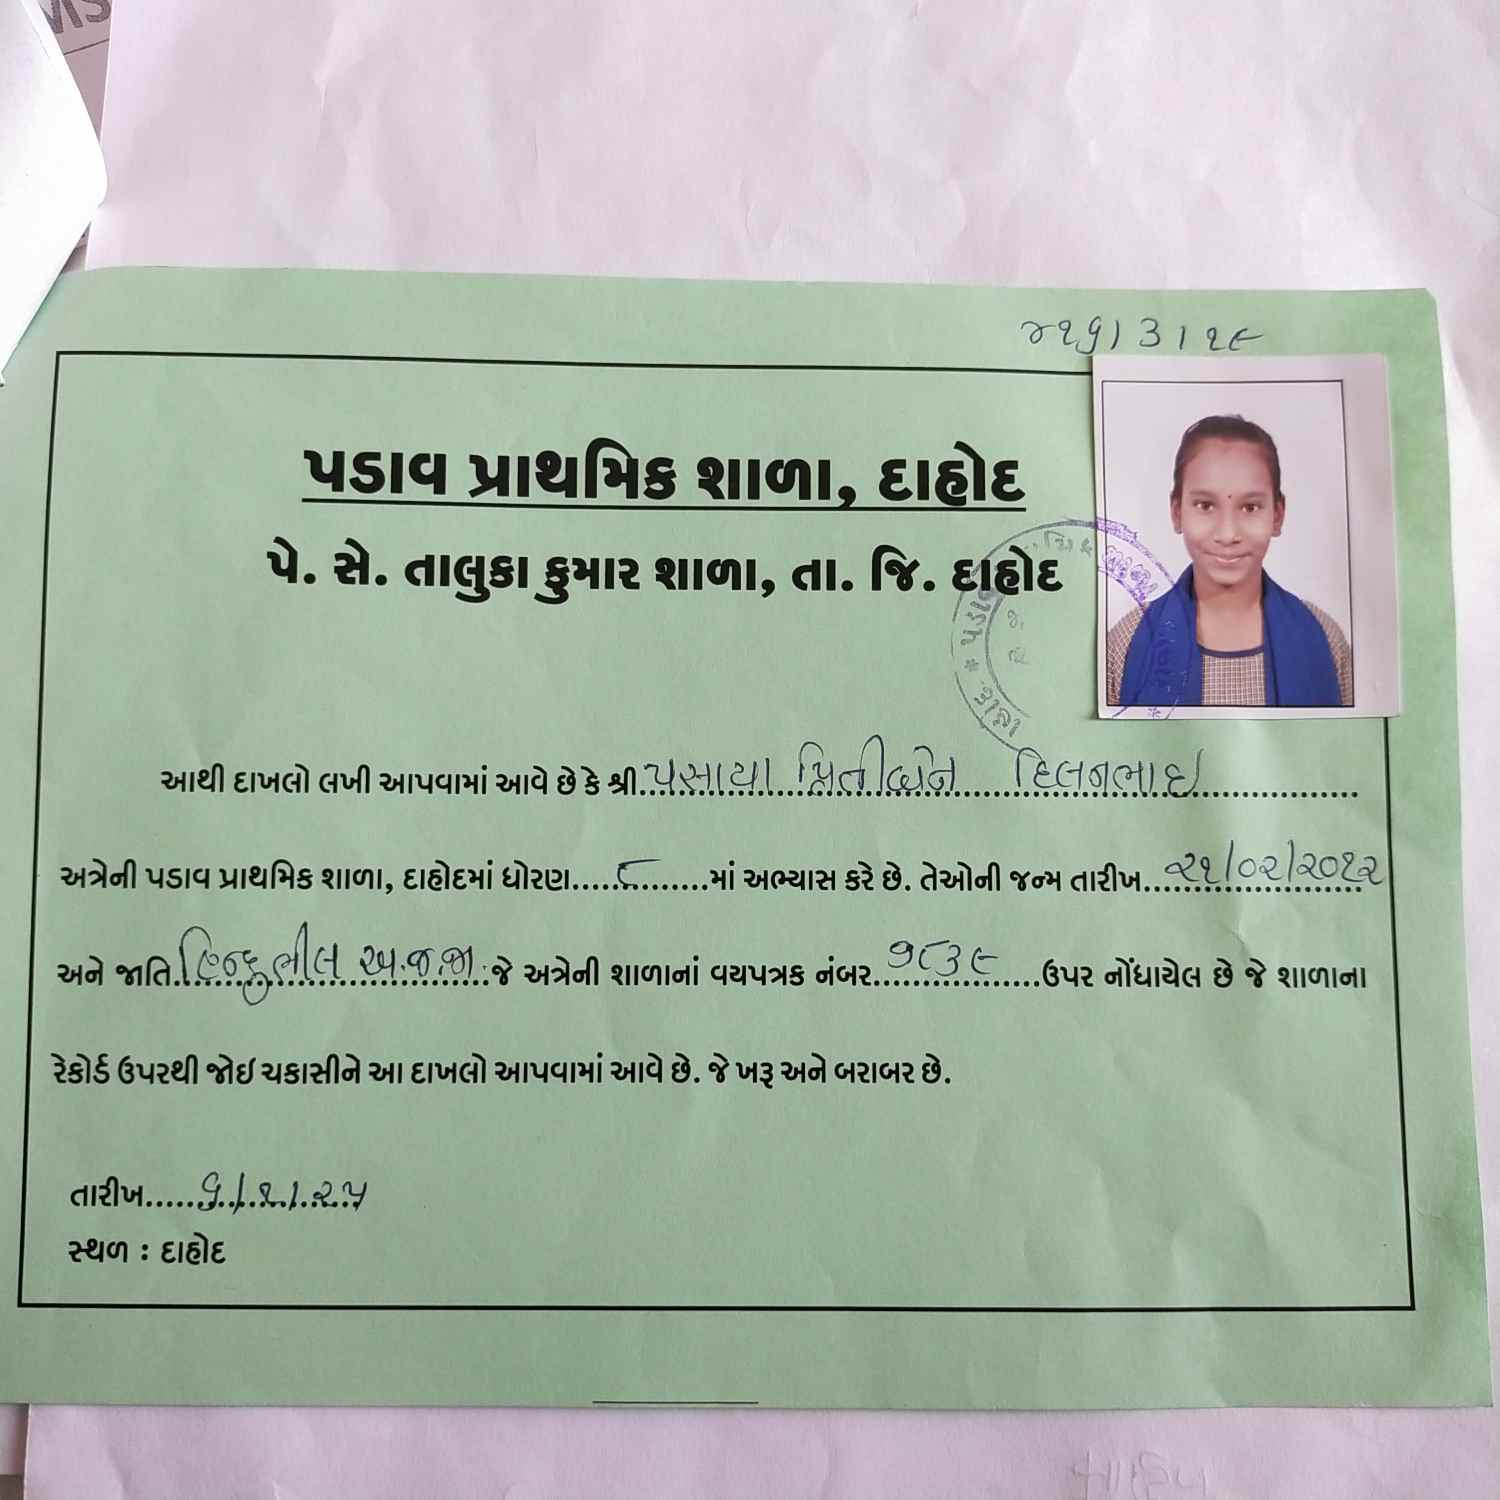 રજી/ 3 / ૨૯
પડાવ પ્રાથમિક શાળા, દાહોદ
પે. સે. તાલુકા કુમાર શાળા, તા. જિ. દાહોદ
આથી દાખલો લખી આપવામાં આવે છે કે શ્રી પસાયા પ્રિતીબેન દિલનભાઈ
અત્રેની પડાવ પ્રાથમિક શાળા, દાહોદમાં ધોરણ.....૮.......માં અભ્યાસ કરે છે. તેઓની જન્મ તારીખ ૨૧/૦૨/૨૦૧૨
અને જાતિ હિન્દુ ભીલ અ.જ.જા. જે અત્રેની શાળાનાં વયપત્રક નંબર ૧૮૩૯ ઉપર નોંધાયેલ છે જે શાળાના
રેકોર્ડ ઉપરથી જોઈ ચકાસીને આ દાખલો આપવામાં આવે છે. જે ખરૂ અને બરાબર છે.
તારીખ..... ૧/૨/૨૫
સ્થળ : દાહોદ